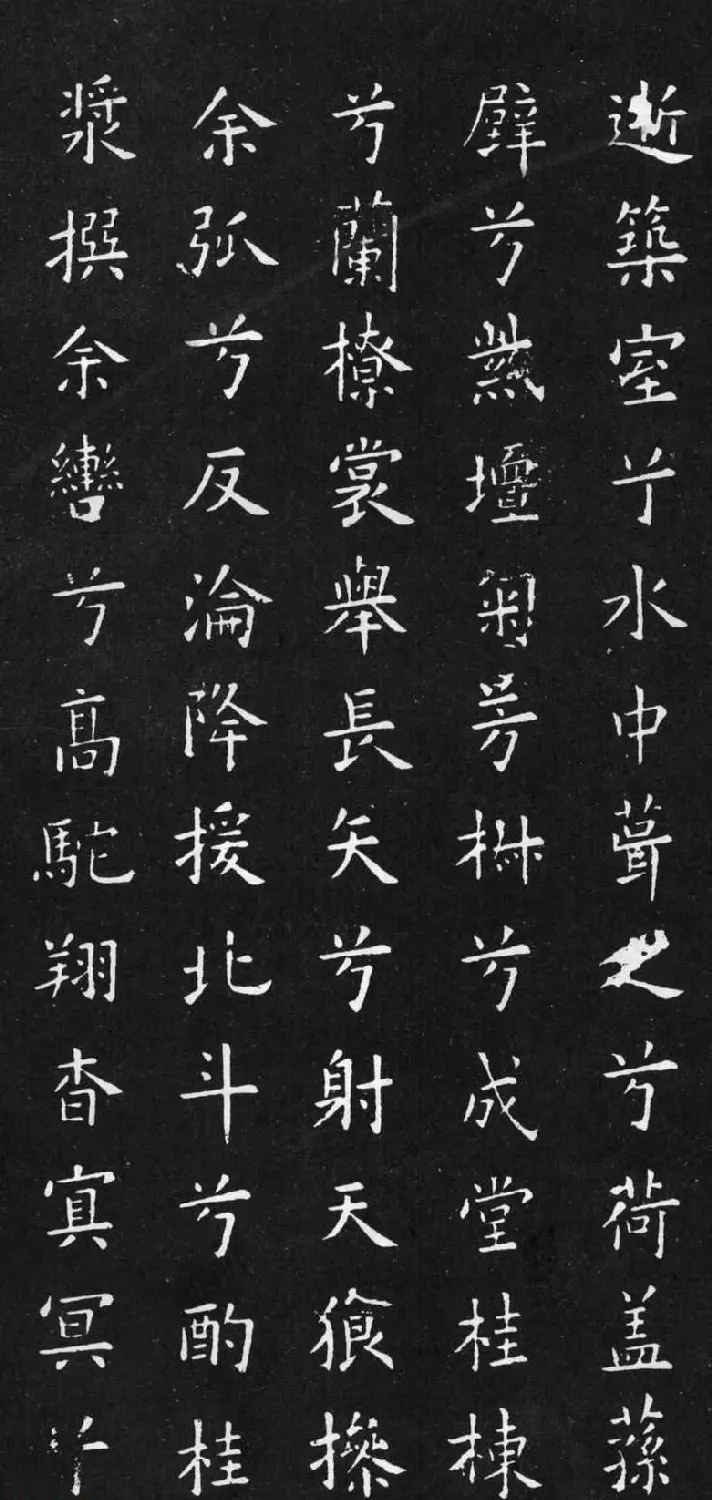 逝築室兮水中葺之兮荷盖蓀
壁兮紫壇匊芳椒兮成堂桂棟
兮蘭橑裳舉長矢兮射天狼操
余弧兮反淪降援北斗兮酌桂
漿撰余轡兮高駝翔杳冥冥兮